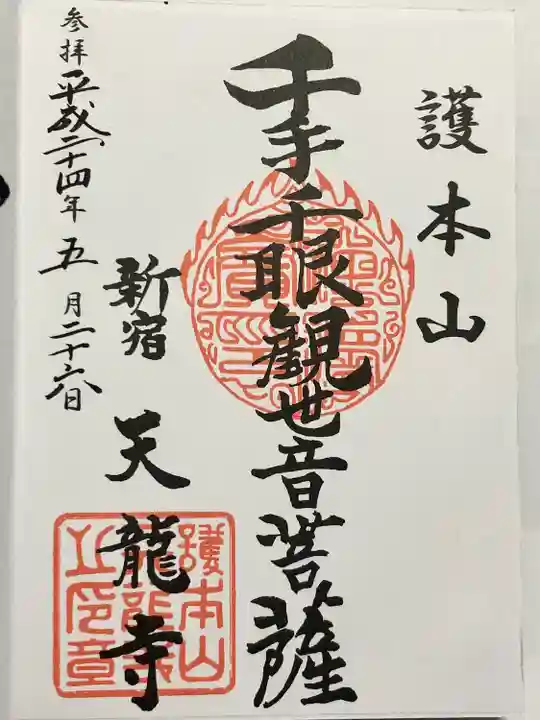 護本山
千手千眼観世音菩薩
新宿
天龍寺
参拝
平成二十四年五月二十六日